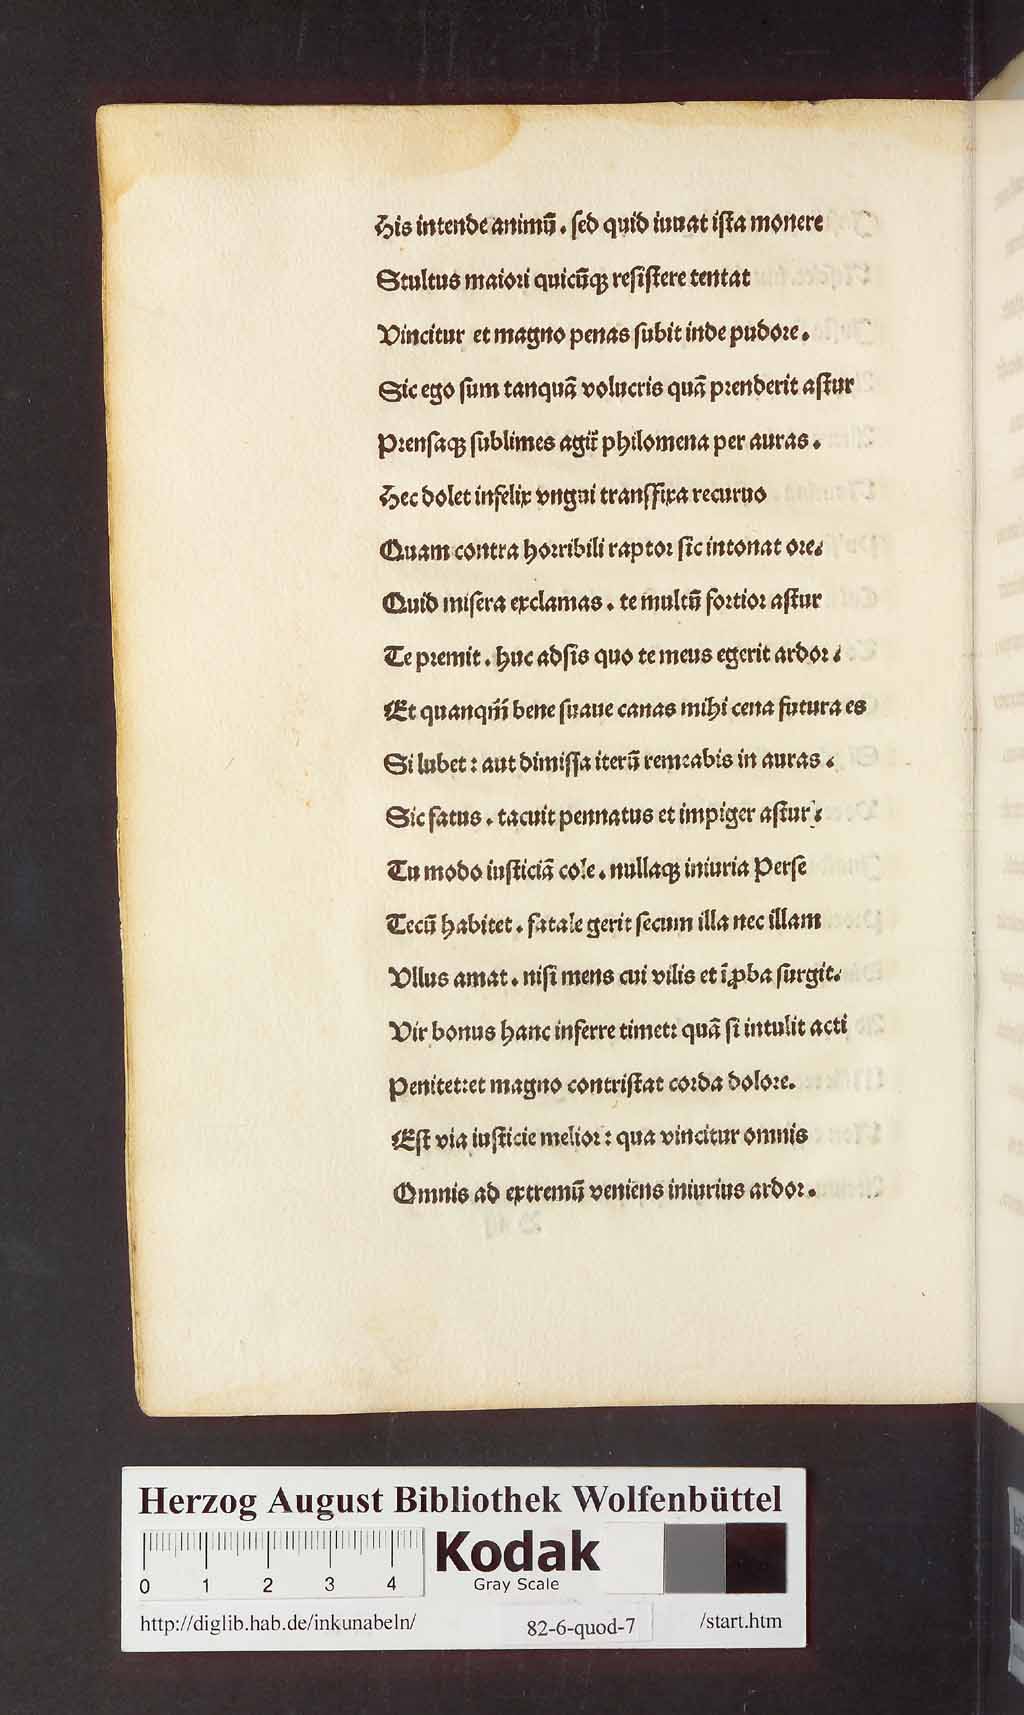 His intende animū. sed quid iuuat ista monere
Stultus maiori quicūqꝫ resistere tentat
Vincitur et magno penas subit inde pudore.
Sic ego sum tanquā volucris quā prenderit astur
Prensaqꝫ sublimes agit̄ philomena per auras.
Hec dolet infelix vngui transfixa recuruo
Quam contra horribili raptor sic intonat ore.
Quid misera exclamas. te multū fortior astur
Te premit. huc adsis quo te meus egerit ardor.
Et quanqm̄ bene suaue canas mihi cena futura es
Si lubet: aut dimissa iterū remeabis in auras.
Sic fatus. tacuit pennatus et impiger astur.
Tu modo iusticiā cole. nullaqꝫ iniuria Perse
Tecū habitet. fatale gerit secum illa nec illam
Vllus amat. nisi mens cui vilis et īꝓba surgit.
Vir bonus hanc inferre timet: quā si intulit acti
Penitet: et magno contristat corda dolore.
Est via iusticie melior: qua vincitur omnis
Omnis ad extremū veniens iniurius ardor.
Herzog August Bibliothek Wolfenbüttel
0 1 2 3 4
Kodak
Gray Scale
http://diglib.hab.de/inkunabeln/ 82-6-quod-7 /start.htm